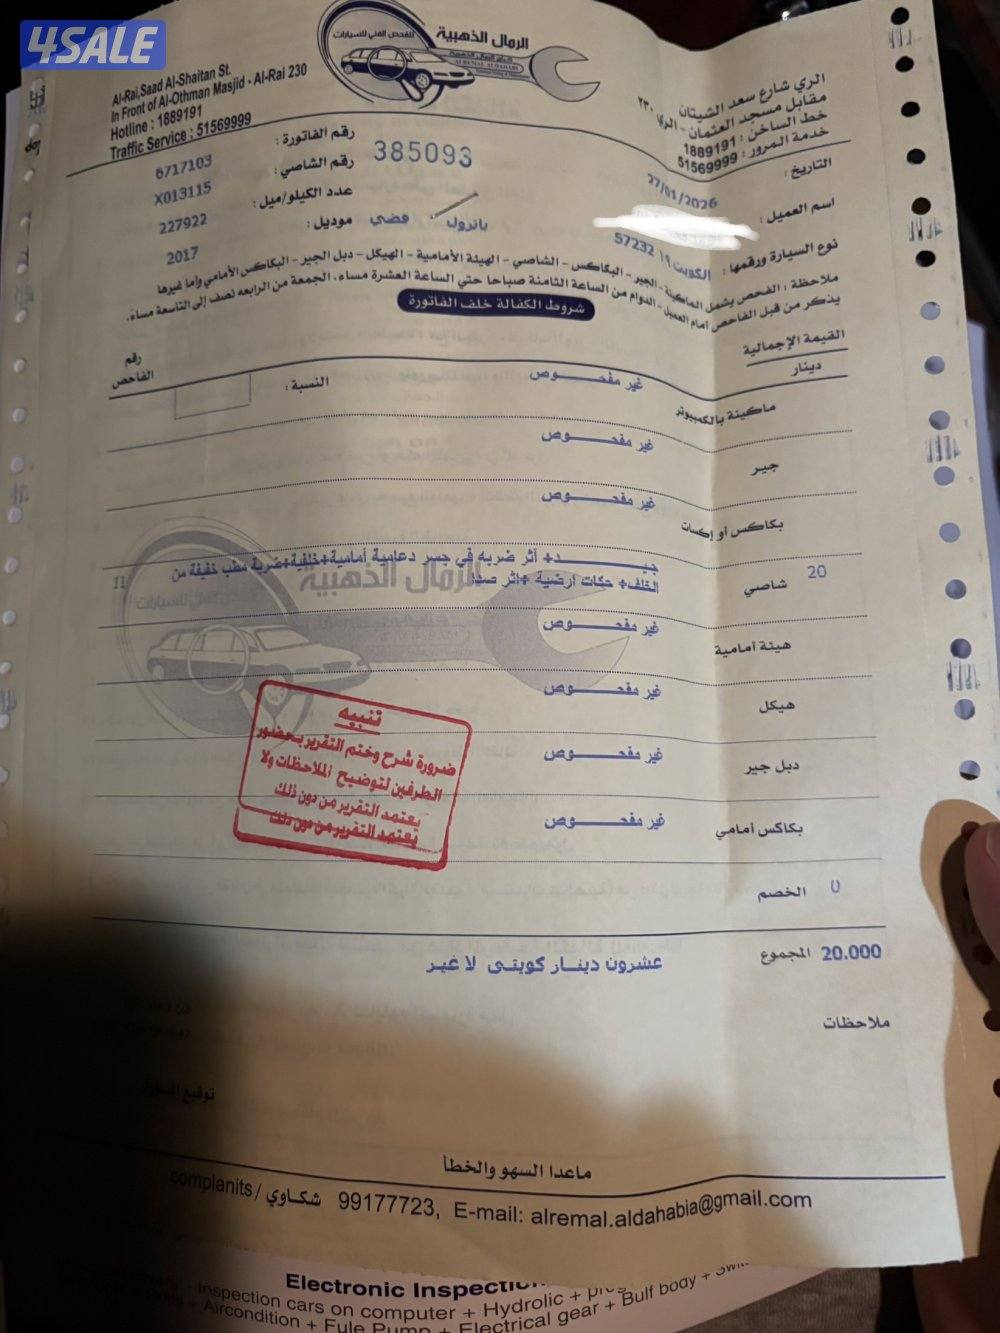 4SALE
الرمال الذهبية
للفحص الفني للسيارات
Al-Rai,Saad Al-Shaitan St.
In Front of Al-Othman Masjid - Al-Rai 230
Hotline : 1889191
Traffic Service : 51569999
الري شارع سعد الشيتان
مقابل مسجد العثمان - الري ٢٣٠
خط الساخن : 1889191
خدمة المرور : 51569999
رقم الفاتورة : 6717103
385093
رقم الشاصي : X013115
عدد الكيلو/ميل : 227922
موديل : 2017
التاريخ : 27/01/2026
اسم العميل :
نوع السيارة ورقمها : الكويت ١٩ 57232 باترول فضي
ملاحظة : الفحص يشمل الماكينة - الجير - البكاكس - الشاصي - الهيئة الأمامية - الهيكل - دبل الجير - البكاكس الأمامي وأما غيرها
يذكر من قبل الفاحص أمام العميل - الدوام من الساعة الثامنة صباحا حتى الساعة العشرة مساء، الجمعة من الرابعه نصف إلى التاسعة مساءً.
شروط الكفالة خلف الفاتورة
القيمة الإجمالية
دينار
رقم
الفاحص
ماكينة بالكمبيوتر غير مفحـــوص النسبة :
جير غير مفحـــوص
بكاكس أو إكسات غير مفحـــوص
20 شاصي جيـــد+ أثر ضربه في جسر دعامية أمامية+خلفية+ضربة مطب خفيفة من 11
الخلف+ حكات أرضية +اثر صدا
هيئة أمامية غير مفحـــوص
هيكل غير مفحـــوص
دبل جير غير مفحـــوص
بكاكس أمامي غير مفحـــوص
تنبيه
ضرورة شرح وختم التقرير بحضور
الطرفين لتوضيح الملاحظات ولا
يعتمد التقرير من دون ذلك
يعتمد التقرير من دون ذلك
0 الخصم
20.000 المجموع عشرون دينـار كويتى لا غير
ملاحظات
ماعدا السهو والخطأ
complanits / شكاوي 99177723, E-mail: alremal.aldahabia@gmail.com
Inspection cars on computer + Hydrolic +
+ Aircondition + Fule Pump + Electrical gear + Bulf body +